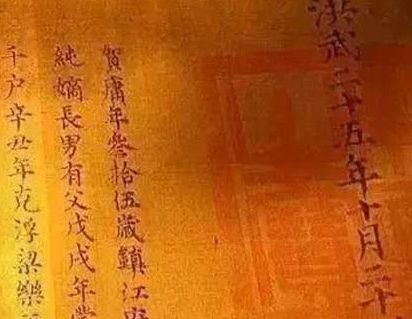 洪武二十五年十月二十
賀庸年叁拾伍歲鎮江府
純嫡長男有父戊戌年
千户辛丑年克浮梁樂